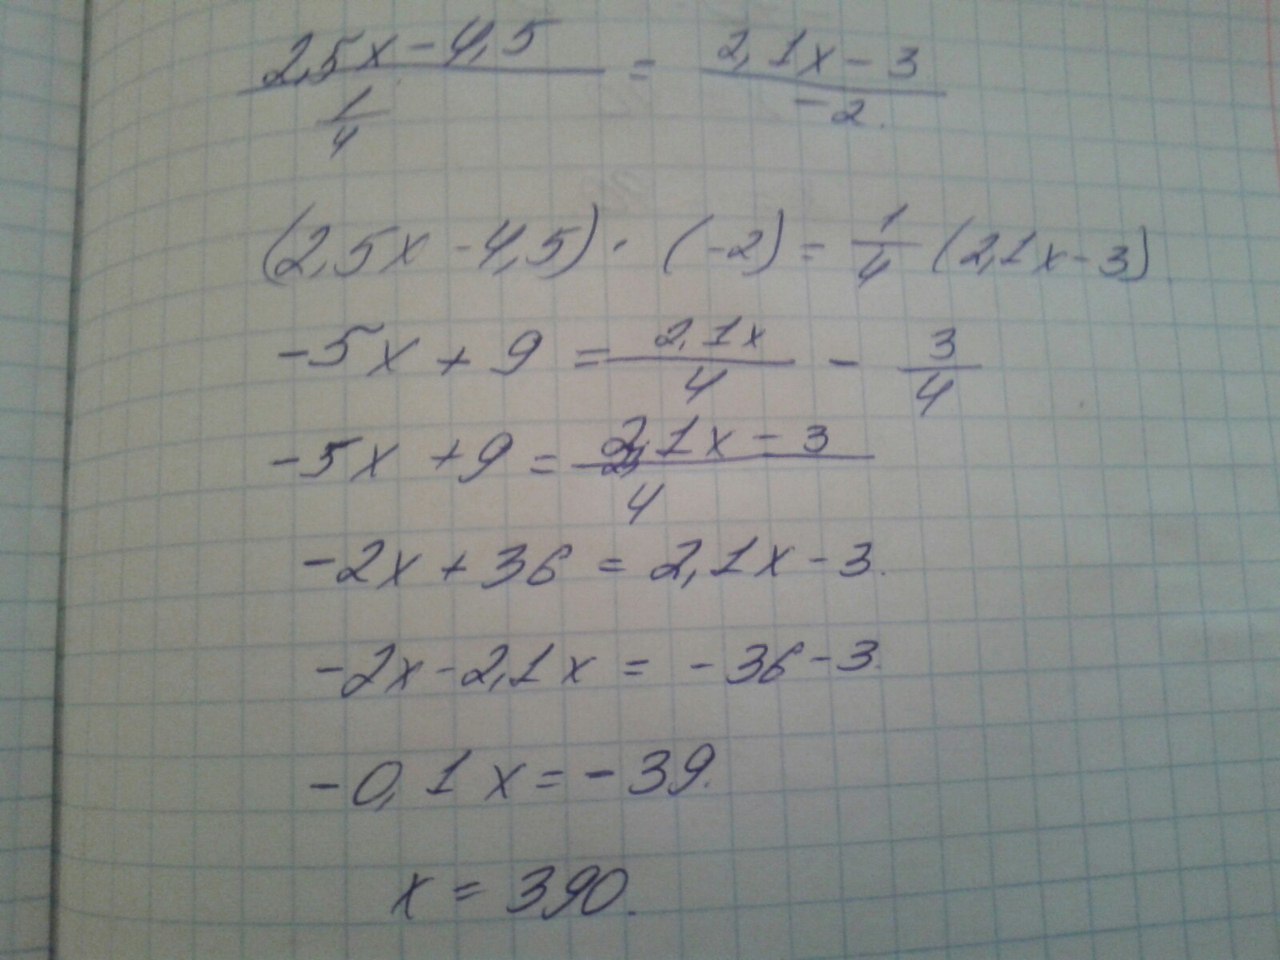 (2,5x - 4,5)/(1/4) = (2,1x - 3)/(-2).
(2,5x - 4,5) · (-2) = 1/4 (2,1x - 3)
-5x + 9 = 2,1x/4 - 3/4
-5x + 9 = (2,1x - 3)/4
-2x + 36 = 2,1x - 3.
-2x - 2,1x = -36 - 3.
-0,1x = -39.
x = 390.